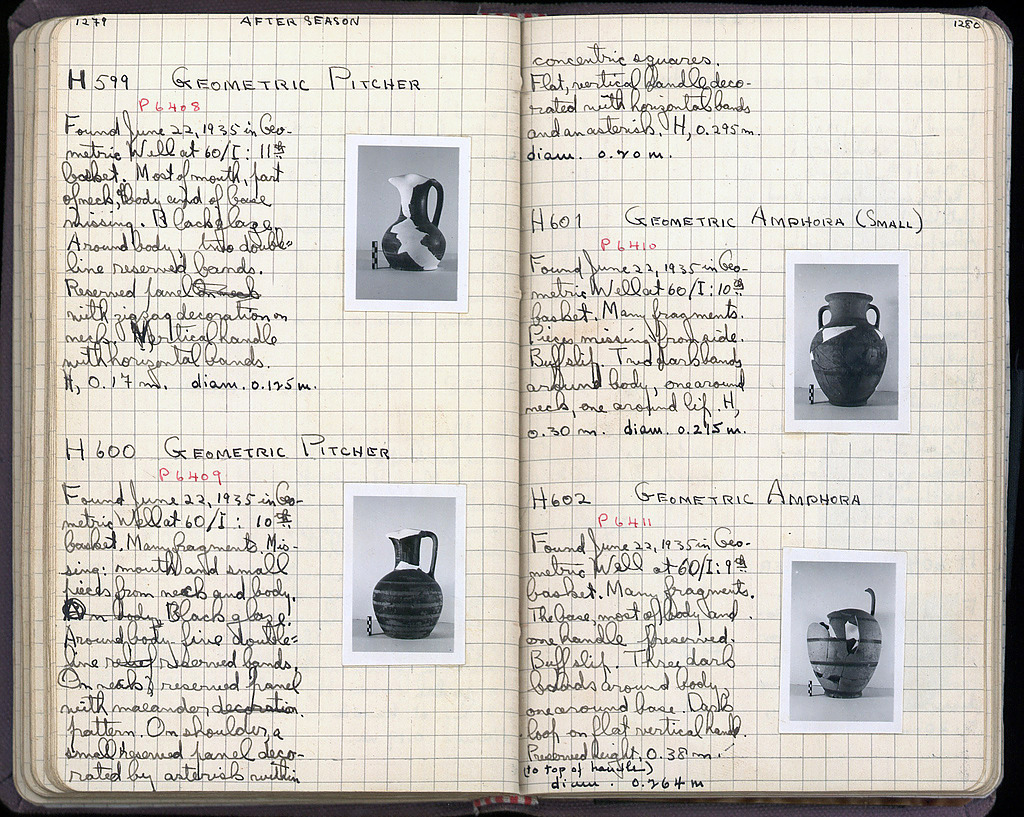 1279 AFTER SEASON
H 599 GEOMETRIC PITCHER
P 6408
Found June 22, 1935 in Geo-
metric Well at 60/I : 11th
basket. Most of mouth, part
of neck, body and of base
missing. Black glaze.
Around body, two double-
line reserved bands.
Reserved panel on neck
with zigzag decoration on
neck. Vertical handle
with horizontal bands.
H, 0.17 m. diam. 0.125 m.
H 600 GEOMETRIC PITCHER
P 6409
Found June 22, 1935 in Geo-
metric Well at 60/I : 10th
basket. Many fragments. Mis-
sing: mouth and small
pieces from neck and body.
On body, Black glaze.
Around body five double-
line reserved bands.
On neck reserved panel
with maeander decoration.
pattern. On shoulder, a
small reserved panel deco-
rated by asterisk within
1280
concentric squares.
Flat, vertical handle deco-
rated with horizontal bands
and an asterisk. H, 0.295 m.
diam. 0.20 m.
H 601 GEOMETRIC AMPHORA (SMALL)
P 6410
Found June 22, 1935 in Geo-
metric Well at 60/I : 10th
basket. Many fragments.
Pieces missing from side.
Buff slip. Two dark bands
around body, one around
neck, one around lip. H,
0.30 m. diam. 0.215 m.
H 602 GEOMETRIC AMPHORA
P 6411
Found June 22, 1935 in Geo-
metric Well at 60/I : 9th
basket. Many fragments.
The base, most of body and
one handle preserved.
Buff slip. Three dark
bands around body
one around base. Dark
loop on flat vertical handle.
Preserved height, 0.38 m.
(to top of handle)
diam. 0.264 m